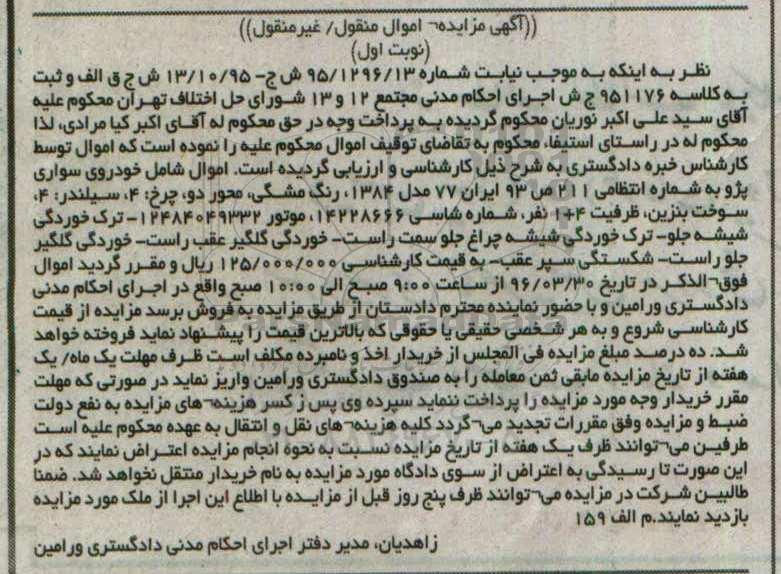 ((آگهی مزایده¬ اموال منقول/ غیرمنقول))
(نوبت اول)
نظر به اینکه به موجب نیابت شماره ۹۵/۱۲۹۶/۱۳ ش ج- ۱۳/۱۰/۹۵ ش ج ق الف و ثبت
به کلاسه ۹۵۱۱۷۶ ج ش اجرای احکام مدنی مجتمع ۱۲ و ۱۳ شورای حل اختلاف تهران محکوم علیه
آقای سید علی اکبر نوریان محکوم گردیده به پرداخت وجه در حق محکوم له آقای اکبر کیا مرادی، لذا
محکوم له در راستای استیفا، محکوم به تقاضای توقیف اموال محکوم علیه را نموده است که اموال توسط
کارشناس خبره دادگستری به شرح ذیل کارشناسی و ارزیابی گردیده است. اموال شامل خودروی سواری
پژو به شماره انتظامی ۲۱۱ ص ۹۳ ایران ۷۷ مدل ۱۳۸۴، رنگ مشگی، محور دو، چرخ: ۴، سیلندر: ۴،
سوخت بنزین، ظرفیت ۴+۱ نفر، شماره شاسی ۱۴۲۲۸۶۶۶، موتور ۱۲۴۸۴۰۴۹۳۳۲- ترک خوردگی
شیشه جلو- ترک خوردگی شیشه چراغ جلو سمت راست- خوردگی گلگیر عقب راست- خوردگی گلگیر
جلو راست- شکستگی سپر عقب- به قیمت کارشناسی ۱۲۵/۰۰۰/۰۰۰ ریال و مقرر گردید اموال
فوق¬الذکر در تاریخ ۹۶/۰۳/۳۰ از ساعت ۹:۰۰ صبح الی ۱۰:۰۰ صبح واقع در اجرای احکام مدنی
دادگستری ورامین و با حضور نماینده محترم دادستان از طریق مزایده به فروش برسد مزایده از قیمت
کارشناسی شروع و به هر شخصی حقیقی یا حقوقی که بالاترین قیمت را پیشنهاد نماید فروخته خواهد
شد. ده درصد مبلغ مزایده فی المجلس از خریدار اخذ و نامبرده مکلف است ظرف مهلت یک ماه/ یک
هفته از تاریخ مزایده مابقی ثمن معامله را به صندوق دادگستری ورامین واریز نماید در صورتی که مهلت
مقرر خریدار وجه مورد مزایده را پرداخت ننماید سپرده وی پس ز کسر هزینه¬های مزایده به نفع دولت
ضبط و مزایده وفق مقررات تجدید می¬گردد کلیه هزینه¬های نقل و انتقال به عهده محکوم علیه است
طرفین می¬توانند ظرف یک هفته از تاریخ مزایده نسبت به نحوه انجام مزایده اعتراض نمایند که در
این صورت تا رسیدگی به اعتراض از سوی دادگاه مورد مزایده به نام خریدار منتقل نخواهد شد. ضمنا
طالبین شرکت در مزایده می¬توانند ظرف پنج روز قبل از مزایده با اطلاع این اجرا از ملک مورد مزایده
بازدید نمایند.م الف ۱۵۹
زاهدیان، مدیر دفتر اجرای احکام مدنی دادگستری ورامین